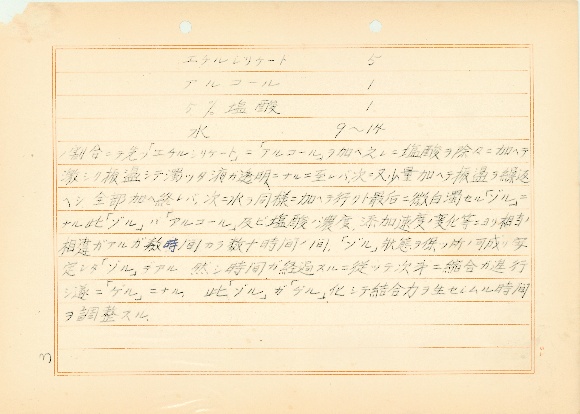 エチルシリケート 5
アルコール 1
5% 塩酸 1
水 9〜14
ノ割合ニテ先ヅ「エチルシリケート」ニ「アルコール」ヲ加ヘ之レニ塩酸ヲ除々ニ加ヘテ
激シク攪過シテ濁ッタ液ガ透明ニナルニ至レバ次ニ又少量加ヘテ攪過ヲ繰返
ヘシ全部加ヘ終レバ、次ニ水ヲ同様ニ加ヘテ行クト最后ニ微白濁セル「ゾル」ニ
ナル此「ゾル」ハ「アルコール」及ビ塩酸ノ濃度、添加速度ノ変化等ニヨリ相当ノ
相違ガアルガ数時間カラ数十時間ノ間、「ゾル」状態ヲ保ツ所ノ可成リ安
定シタ「ゾル」デアル 然シ時間ガ経過スルニ従ッテ次第ニ縮合ガ進行
シ遂ニ「ゲル」ニナル. 此「ゾル」ガ「ゲル」化シテ結合力ヲ生ゼシムル時間
ヲ調整スル.
3